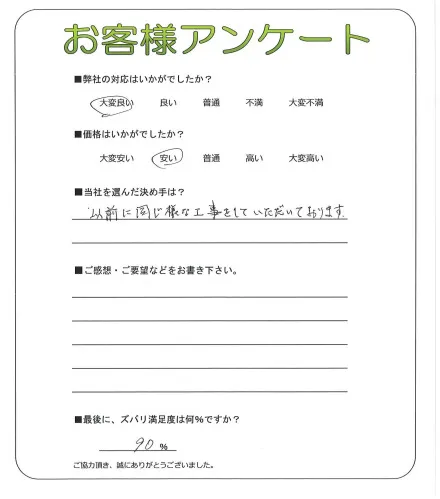 お客様アンケート
■弊社の対応はいかがでしたか?
大変良い 良い 普通 不満 大変不満
■価格はいかがでしたか?
大変安い 安い 普通 高い 大変高い
■当社を選んだ決め手は?
以前に同じ様な工事をしていただいております.
■ご感想・ご要望などをお書き下さい。
■最後に、ズバリ満足度は何%ですか?
90 %
ご協力頂き、誠にありがとうございました。